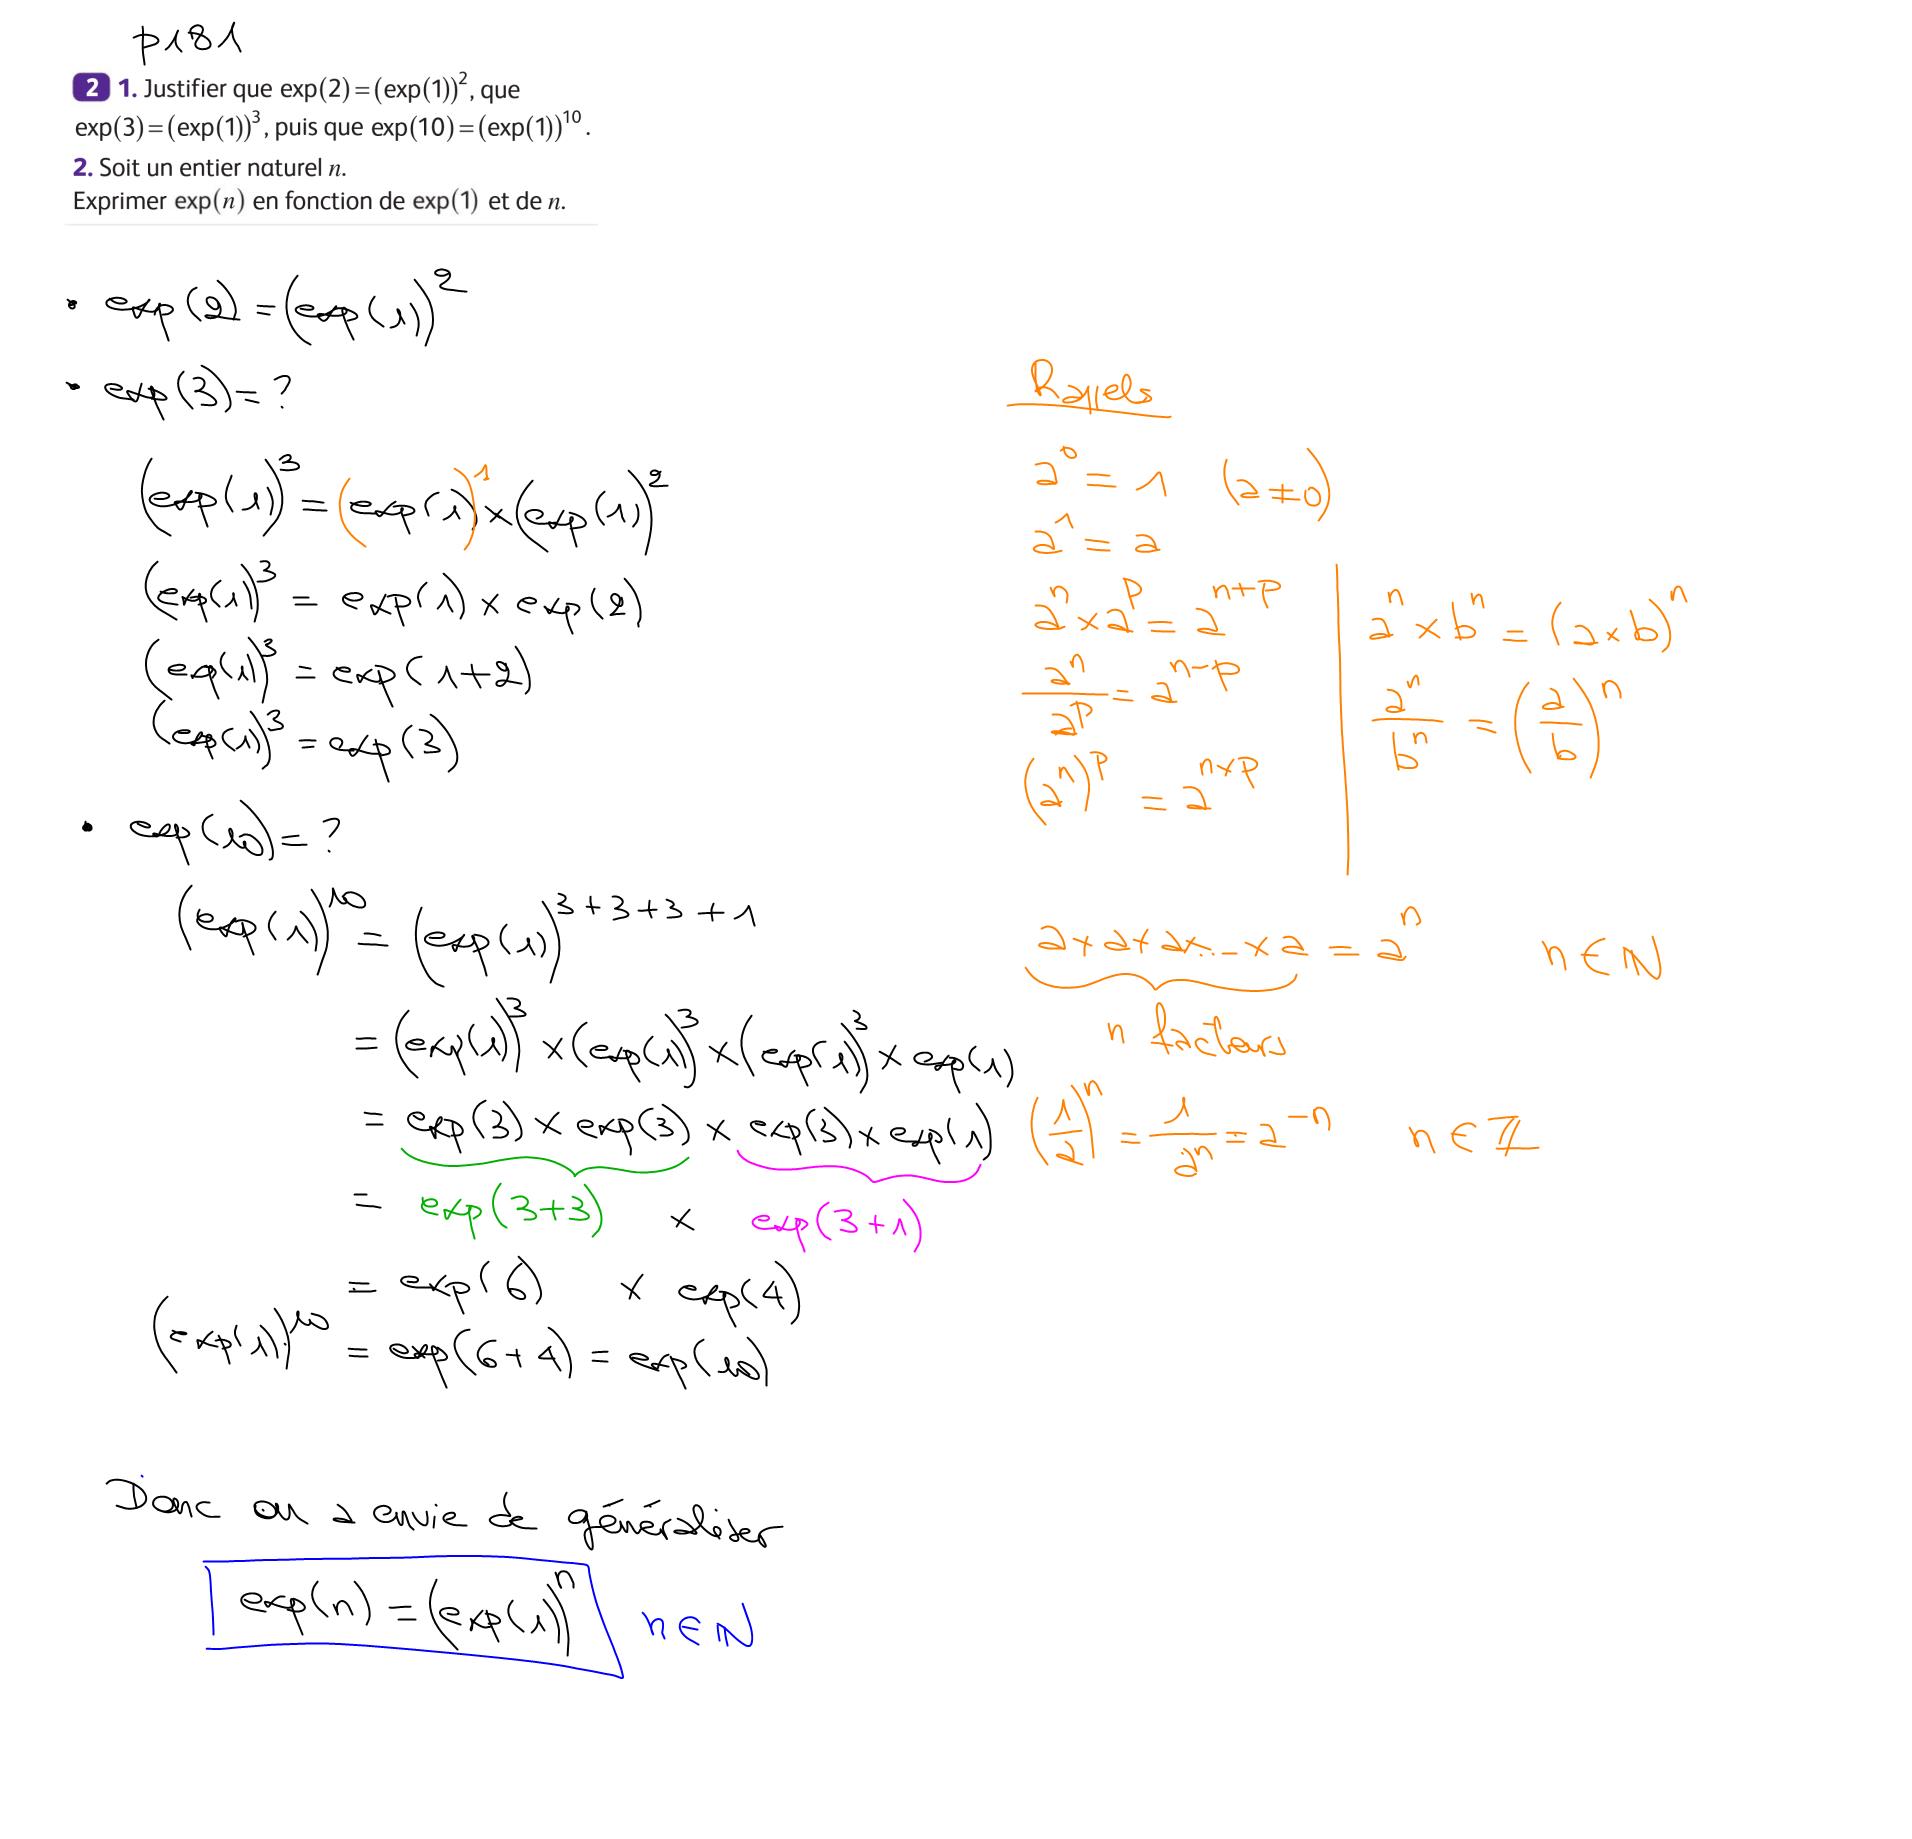 p181
2 1. Justifier que exp(2)=(exp(1))², que
exp(3)=(exp(1))³, puis que exp(10)=(exp(1))¹⁰.
2. Soit un entier naturel n.
Exprimer exp(n) en fonction de exp(1) et de n.
• exp(2) = (exp(1))²
• exp(3) = ?
(exp(1))³ = (exp(1))¹ × (exp(1))²
(exp(1))³ = exp(1) × exp(2)
(exp(1))³ = exp(1+2)
(exp(1))³ = exp(3)
• exp(10) = ?
(exp(1))¹⁰ = (exp(1))³⁺³⁺³⁺¹
= (exp(1))³ × (exp(1))³ × (exp(1))³ × exp(1)
= exp(3) × exp(3) × exp(3) × exp(1)
= exp(3+3) × exp(3+1)
= exp(6) × exp(4)
(exp(1))¹⁰ = exp(6+4) = exp(10)
Donc on a envie de généraliser
exp(n) = (exp(1))ⁿ n ∈ ℕ
Rappels
a⁰ = 1 (a ≠ 0)
a¹ = a
aⁿ × aᵖ = aⁿ⁺ᵖ
aⁿ/aᵖ = aⁿ⁻ᵖ
(aⁿ)ᵖ = aⁿˣᵖ
aⁿ × bⁿ = (a × b)ⁿ
aⁿ/bⁿ = (a/b)ⁿ
a × a × a × ... × a = aⁿ n ∈ ℕ
n facteurs
(1/a)ⁿ = 1/aⁿ = a⁻ⁿ n ∈ ℤ